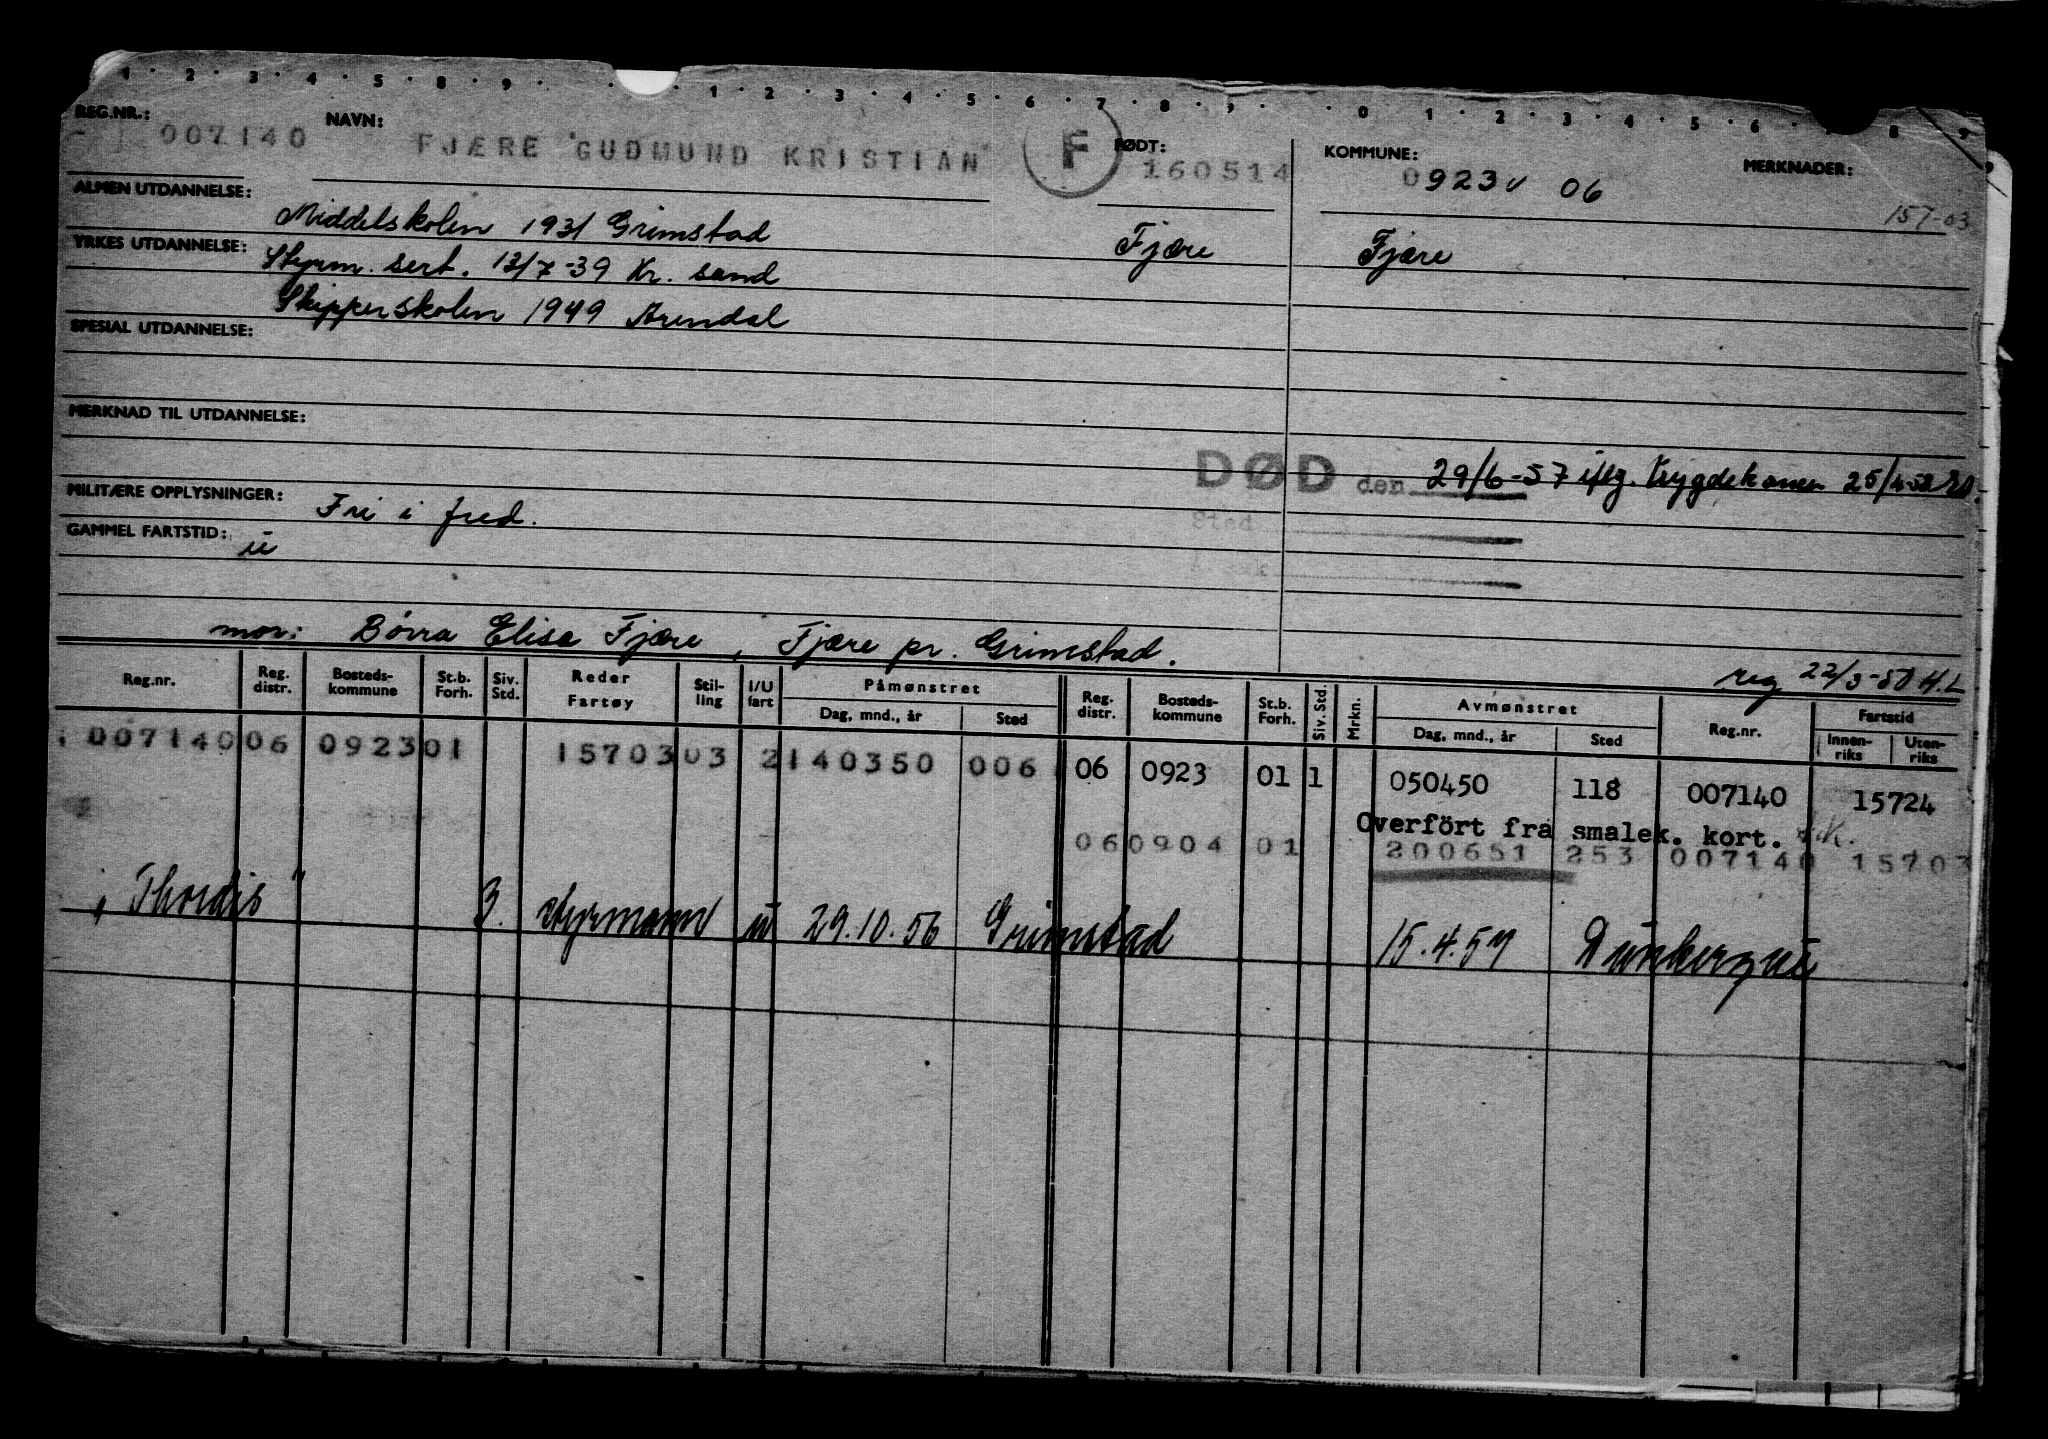 1 · 2 · 3 · 4 · 5 · 8 · 9 · 1 · 2 · 3 · 4 · 5 · 6 · 7 · 8 · 9 · 0 · 1 · 2 · 3 · 4 · 5 · 6 · 8 · 9
REG.NR.: 007140 NAVN: FJÆRE GUDMUND KRISTIAN F FØDT: 160514 KOMMUNE: 0923 06 MERKNADER:
157-03
ALMEN UTDANNELSE: Middelskolen 1931 Grimstad Fjære Fjære
YRKES UTDANNELSE: Styrm. sert. 12/7-39 Kr. sand
Skipperskolen 1949 Arendal
SPESIAL UTDANNELSE:
MERKNAD TIL UTDANNELSE:
DØD den 29/6-57 iflg. trygdekassen
MILITÆRE OPPLYSNINGER: Fri i fred.
Sted
GAMMEL FARTSTID: u
mor: Børra Elise Fjære, Fjære pr. Grimstad.
reg 22/3-50 H.L
Reg.nr. Reg. distr. Bosteds-kommune St.b. Forh. Siv. Std. Reder Fartøy Stil-ling I/U fart Påmønstret Dag, mnd., år Sted Reg. distr. Bosteds-kommune St.b. Forh. Siv. Std. Mrkn. Avmønstret Dag, mnd., år Sted Reg.nr. Fartstid Innen-riks Uten-riks
007140 06 0923 01 15703 03 2 140350 006 06 0923 01 1 050450 118 007140 15724
Overfört fra smalek. kort.
06 0904 01 200651 253 007140 15703
"Thordis" 3. styrmann u 29.10.56 Grimstad 15.4.57 Dunkerque